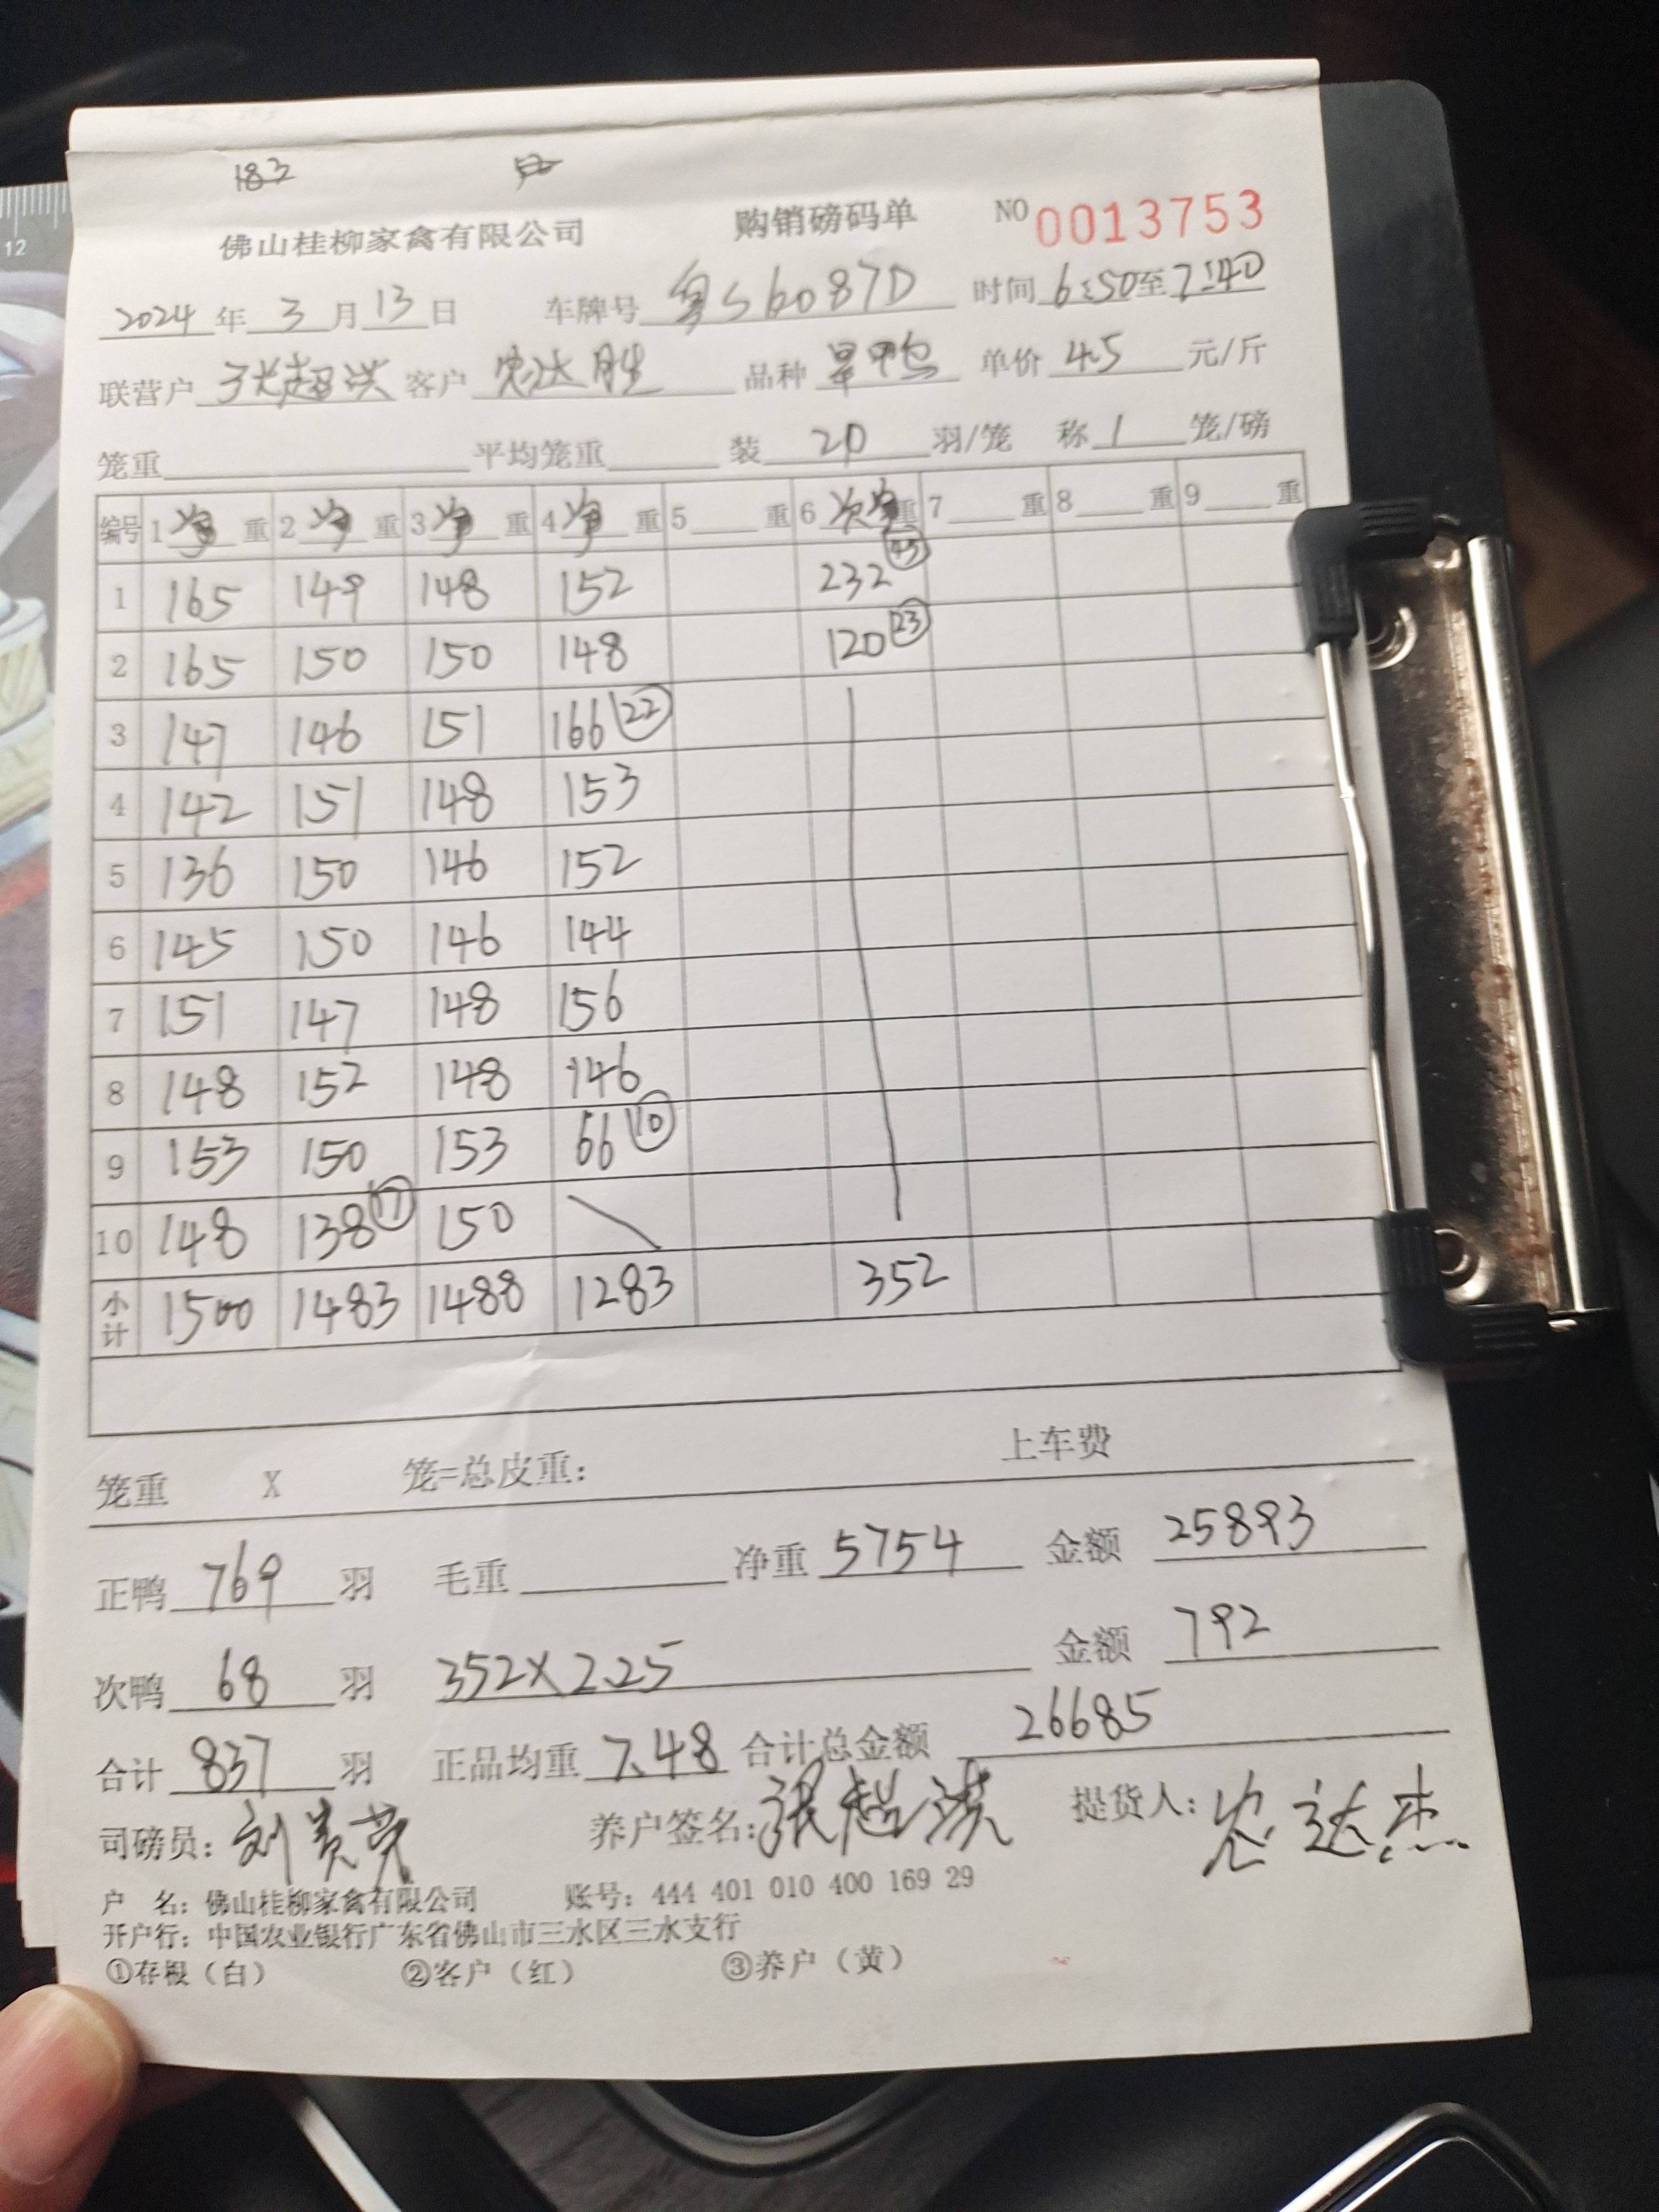 12
183
佛山桂柳家禽有限公司 购销磅码单 NO 0013753
2024年3月13日 车牌号 粤S6087D 时间 6:50至7:40
联营户 张超洪 客户 农达胜 品种 旱鸭 单价 4.5 元/斤
笼重 平均笼重 装 20 羽/笼 称 1 笼/磅
编号 1 净 重 2 净 重 3 净 重 4 净 重 5 重 6 次净重 7 重 8 重 9 重
1 165 149 148 152 232 (45)
2 165 150 150 148 120 (23)
3 147 146 151 166 (22)
4 142 151 148 153
5 136 150 146 152
6 145 150 146 144
7 151 147 148 156
8 148 152 148 146
9 153 150 153 66 (10)
10 148 138 (17) 150
小计 1500 1483 1488 1283 352
上车费
笼重 X 笼=总皮重:
正鸭 769 羽 毛重 净重 5754 金额 25893
次鸭 68 羽 352×2.25 金额 792
合计 837 羽 正品均重 7.48 合计总金额 26685
司磅员: 刘贵荣 养户签名: 张超洪 提货人: 农达杰
户 名: 佛山桂柳家禽有限公司 账号: 444 401 010 400 169 29
开户行: 中国农业银行广东省佛山市三水区三水支行
①存根（白） ②客户（红） ③养户（黄）